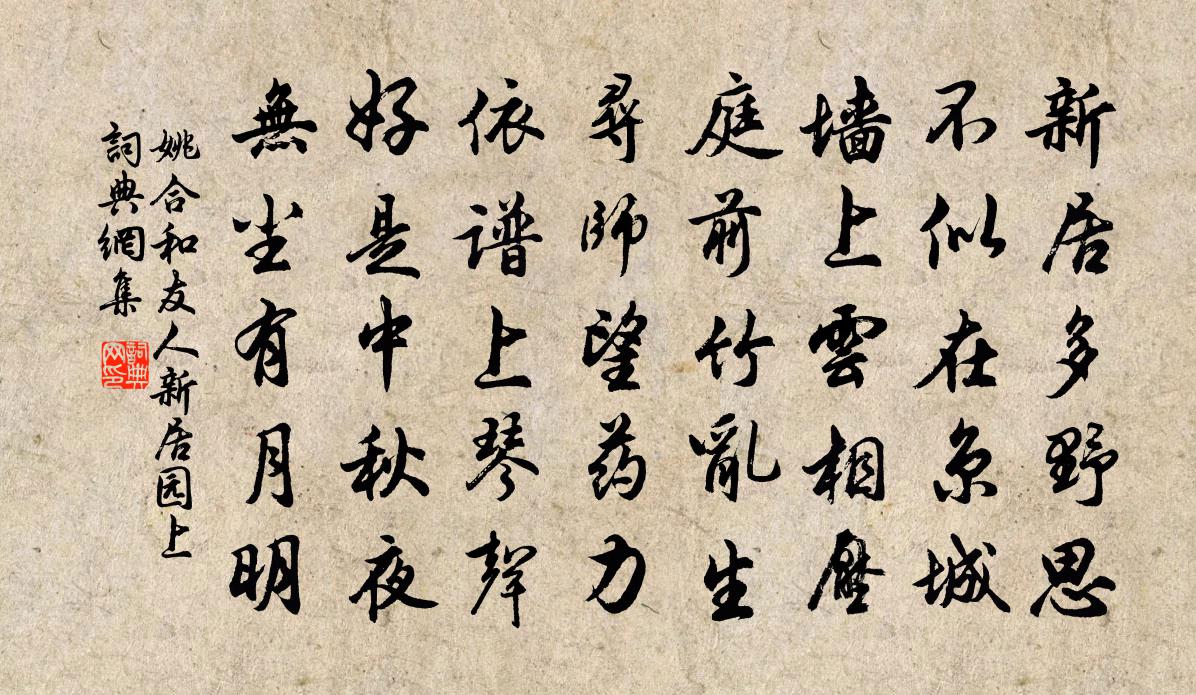 新居多野思
不似在京城
墙上雲相壓
庭前竹亂生
尋師望药力
依谱上琴聲
好是中秋夜
無尘有月明
姚合和友人新居园上
詞典網集
詞典网印